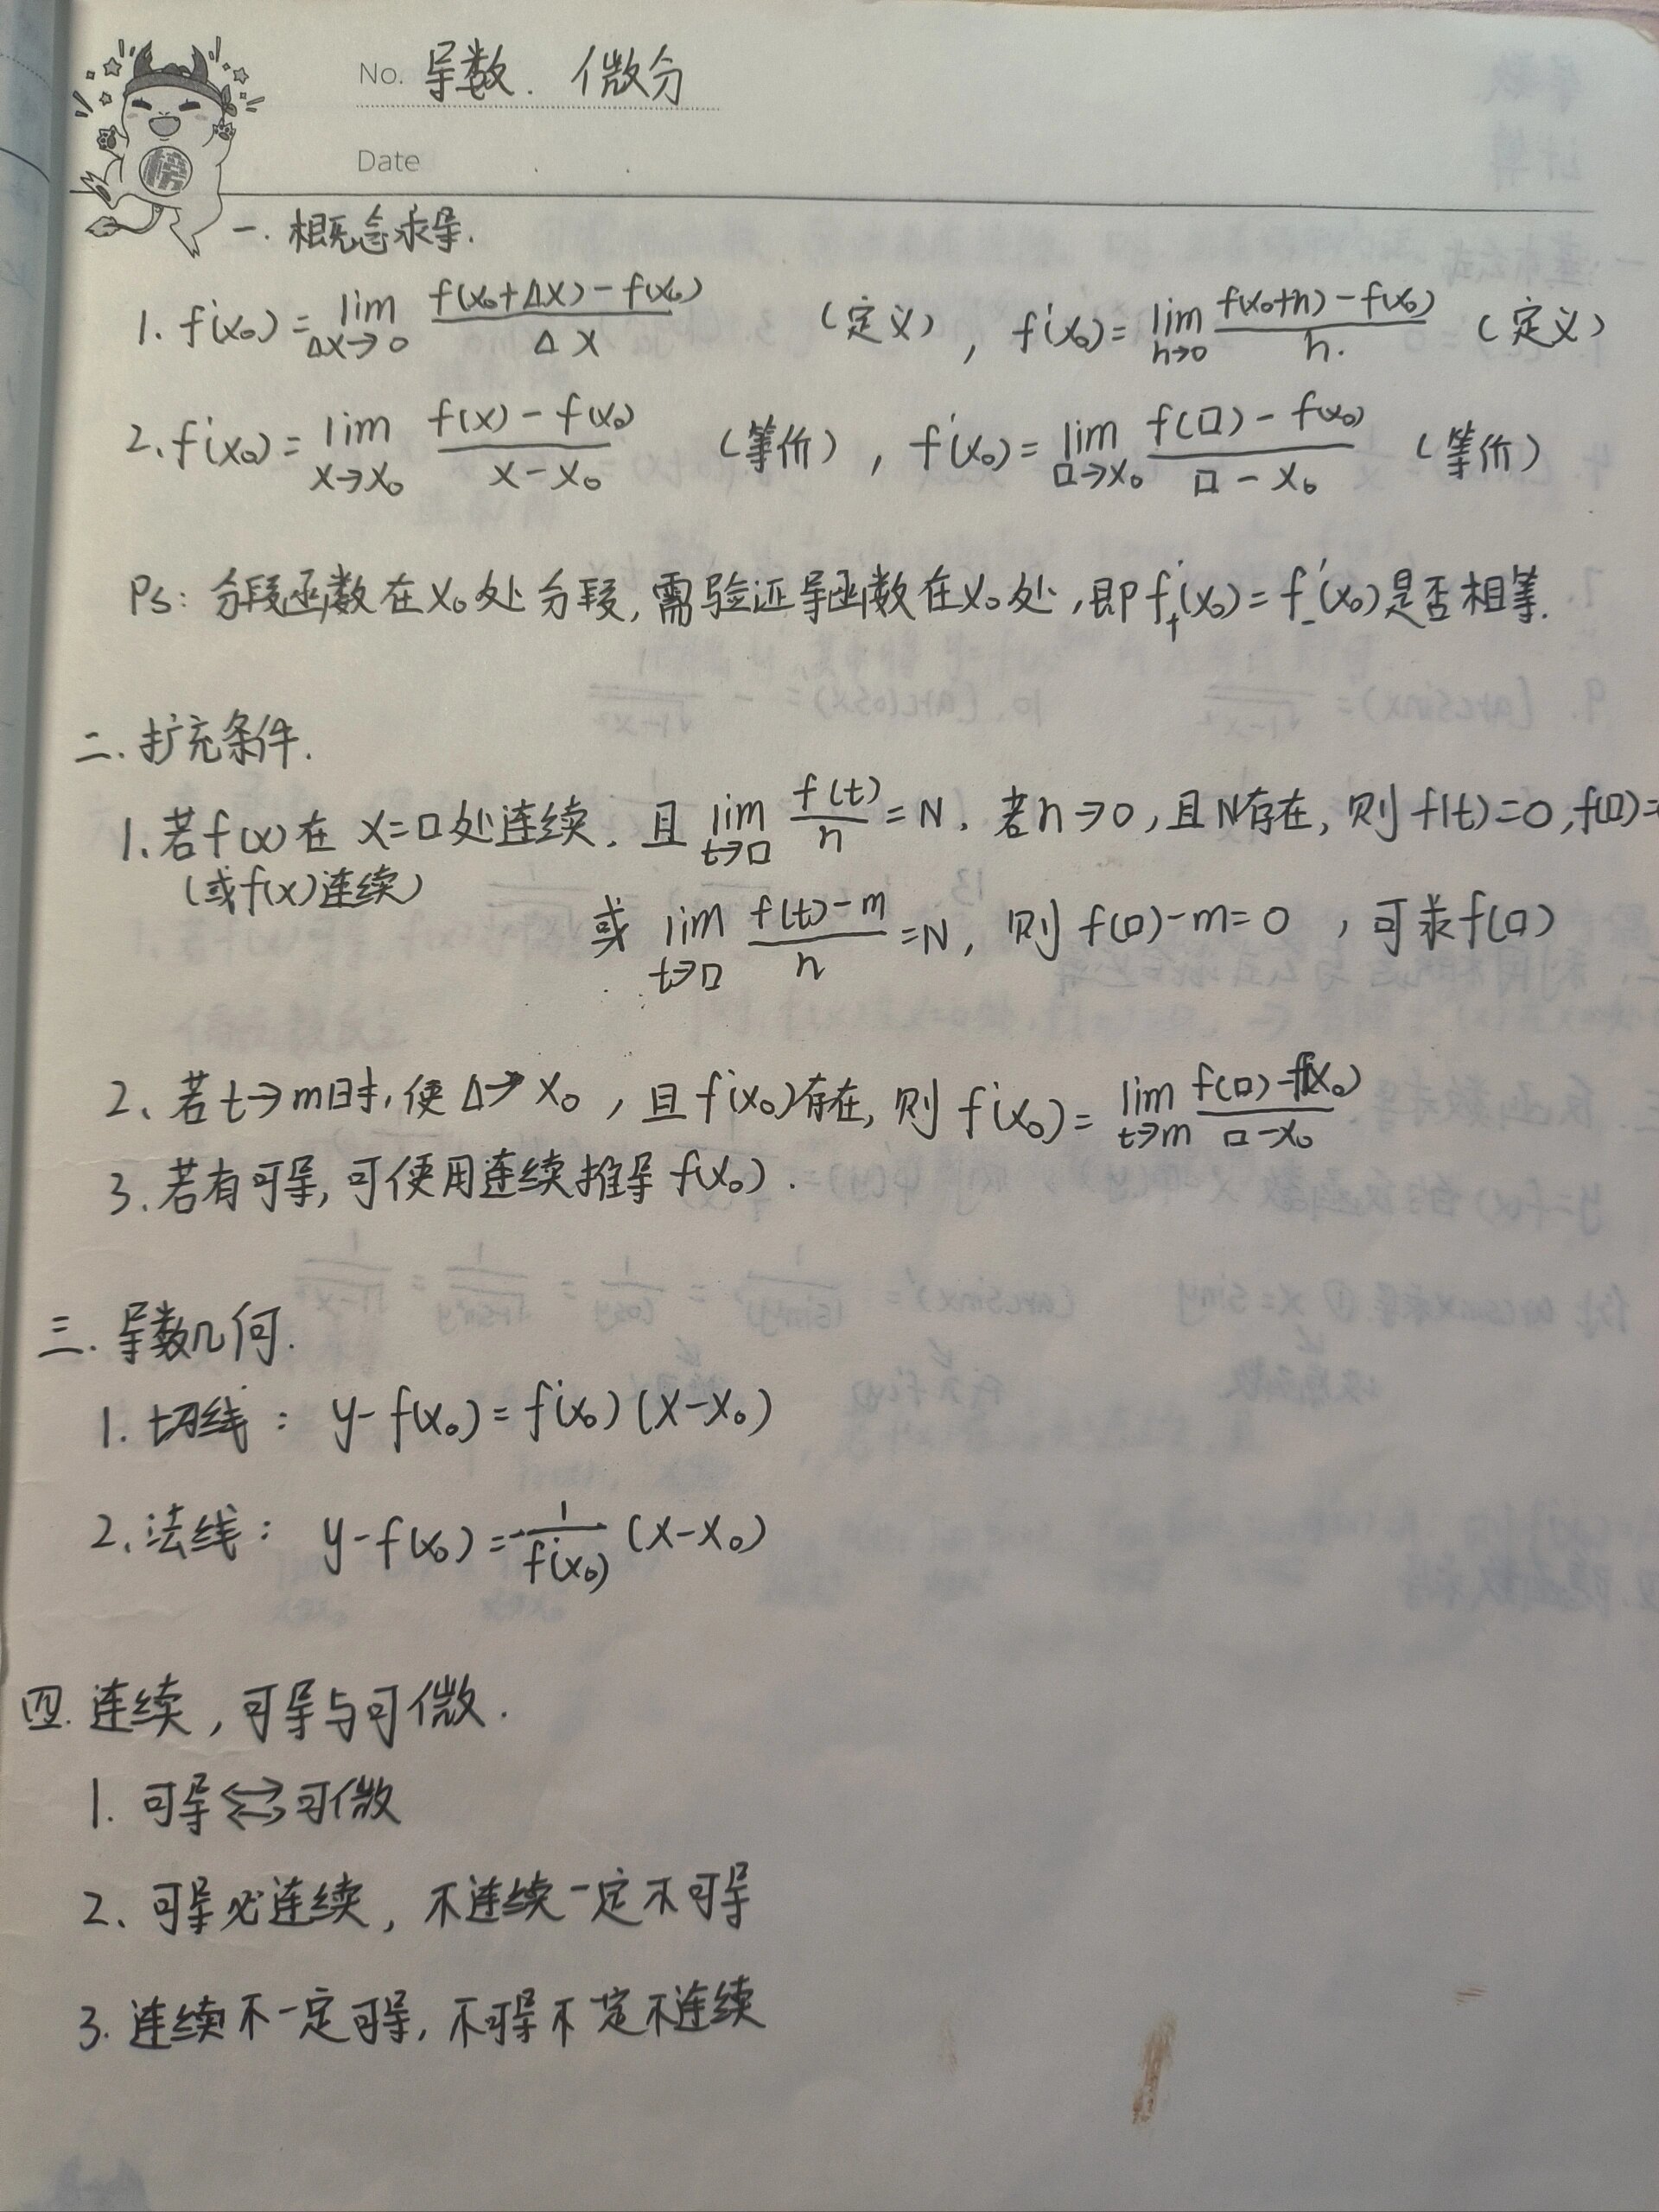 No. 导数. 微分
Date
榜
一. 概念求导.
1. f'(x₀)=lim Δx→0 (f(x₀+Δx)-f(x₀))/Δx (定义), f'(x₀)=lim h→0 (f(x₀+h)-f(x₀))/h. (定义)
2. f'(x₀)=lim x→x₀ (f(x)-f(x₀))/(x-x₀) (等价), f'(x₀)=lim □→x₀ (f(□)-f(x₀))/(□-x₀) (等价)
Ps: 分段函数在x₀处分段, 需验证导函数在x₀处, 即f₊'(x₀)=f₋'(x₀)是否相等.
二. 扩充条件.
1. 若f(x)在 x=□处连续. 且 lim t→□ f(t)/n=N. 若n→0, 且N存在, 则f(t)=0, f(□)=
(或f(x)连续)
或 lim t→□ (f(t)-m)/n=N, 则 f(□)-m=0 , 可求f(□)
2. 若t→m时, 使Δ→x₀, 且f'(x₀)存在, 则 f'(x₀)=lim t→m (f(□)-f(x₀))/(□-x₀)
3. 若有可导, 可使用连续推导f(x₀).
三. 导数几何.
1. 切线: y-f(x₀)=f'(x₀)(x-x₀)
2. 法线: y-f(x₀)=-1/f'(x₀) (x-x₀)
四. 连续, 可导与可微.
1. 可导⇆可微
2. 可导必连续, 不连续一定不可导
3. 连续不一定可导, 不可导不一定不连续